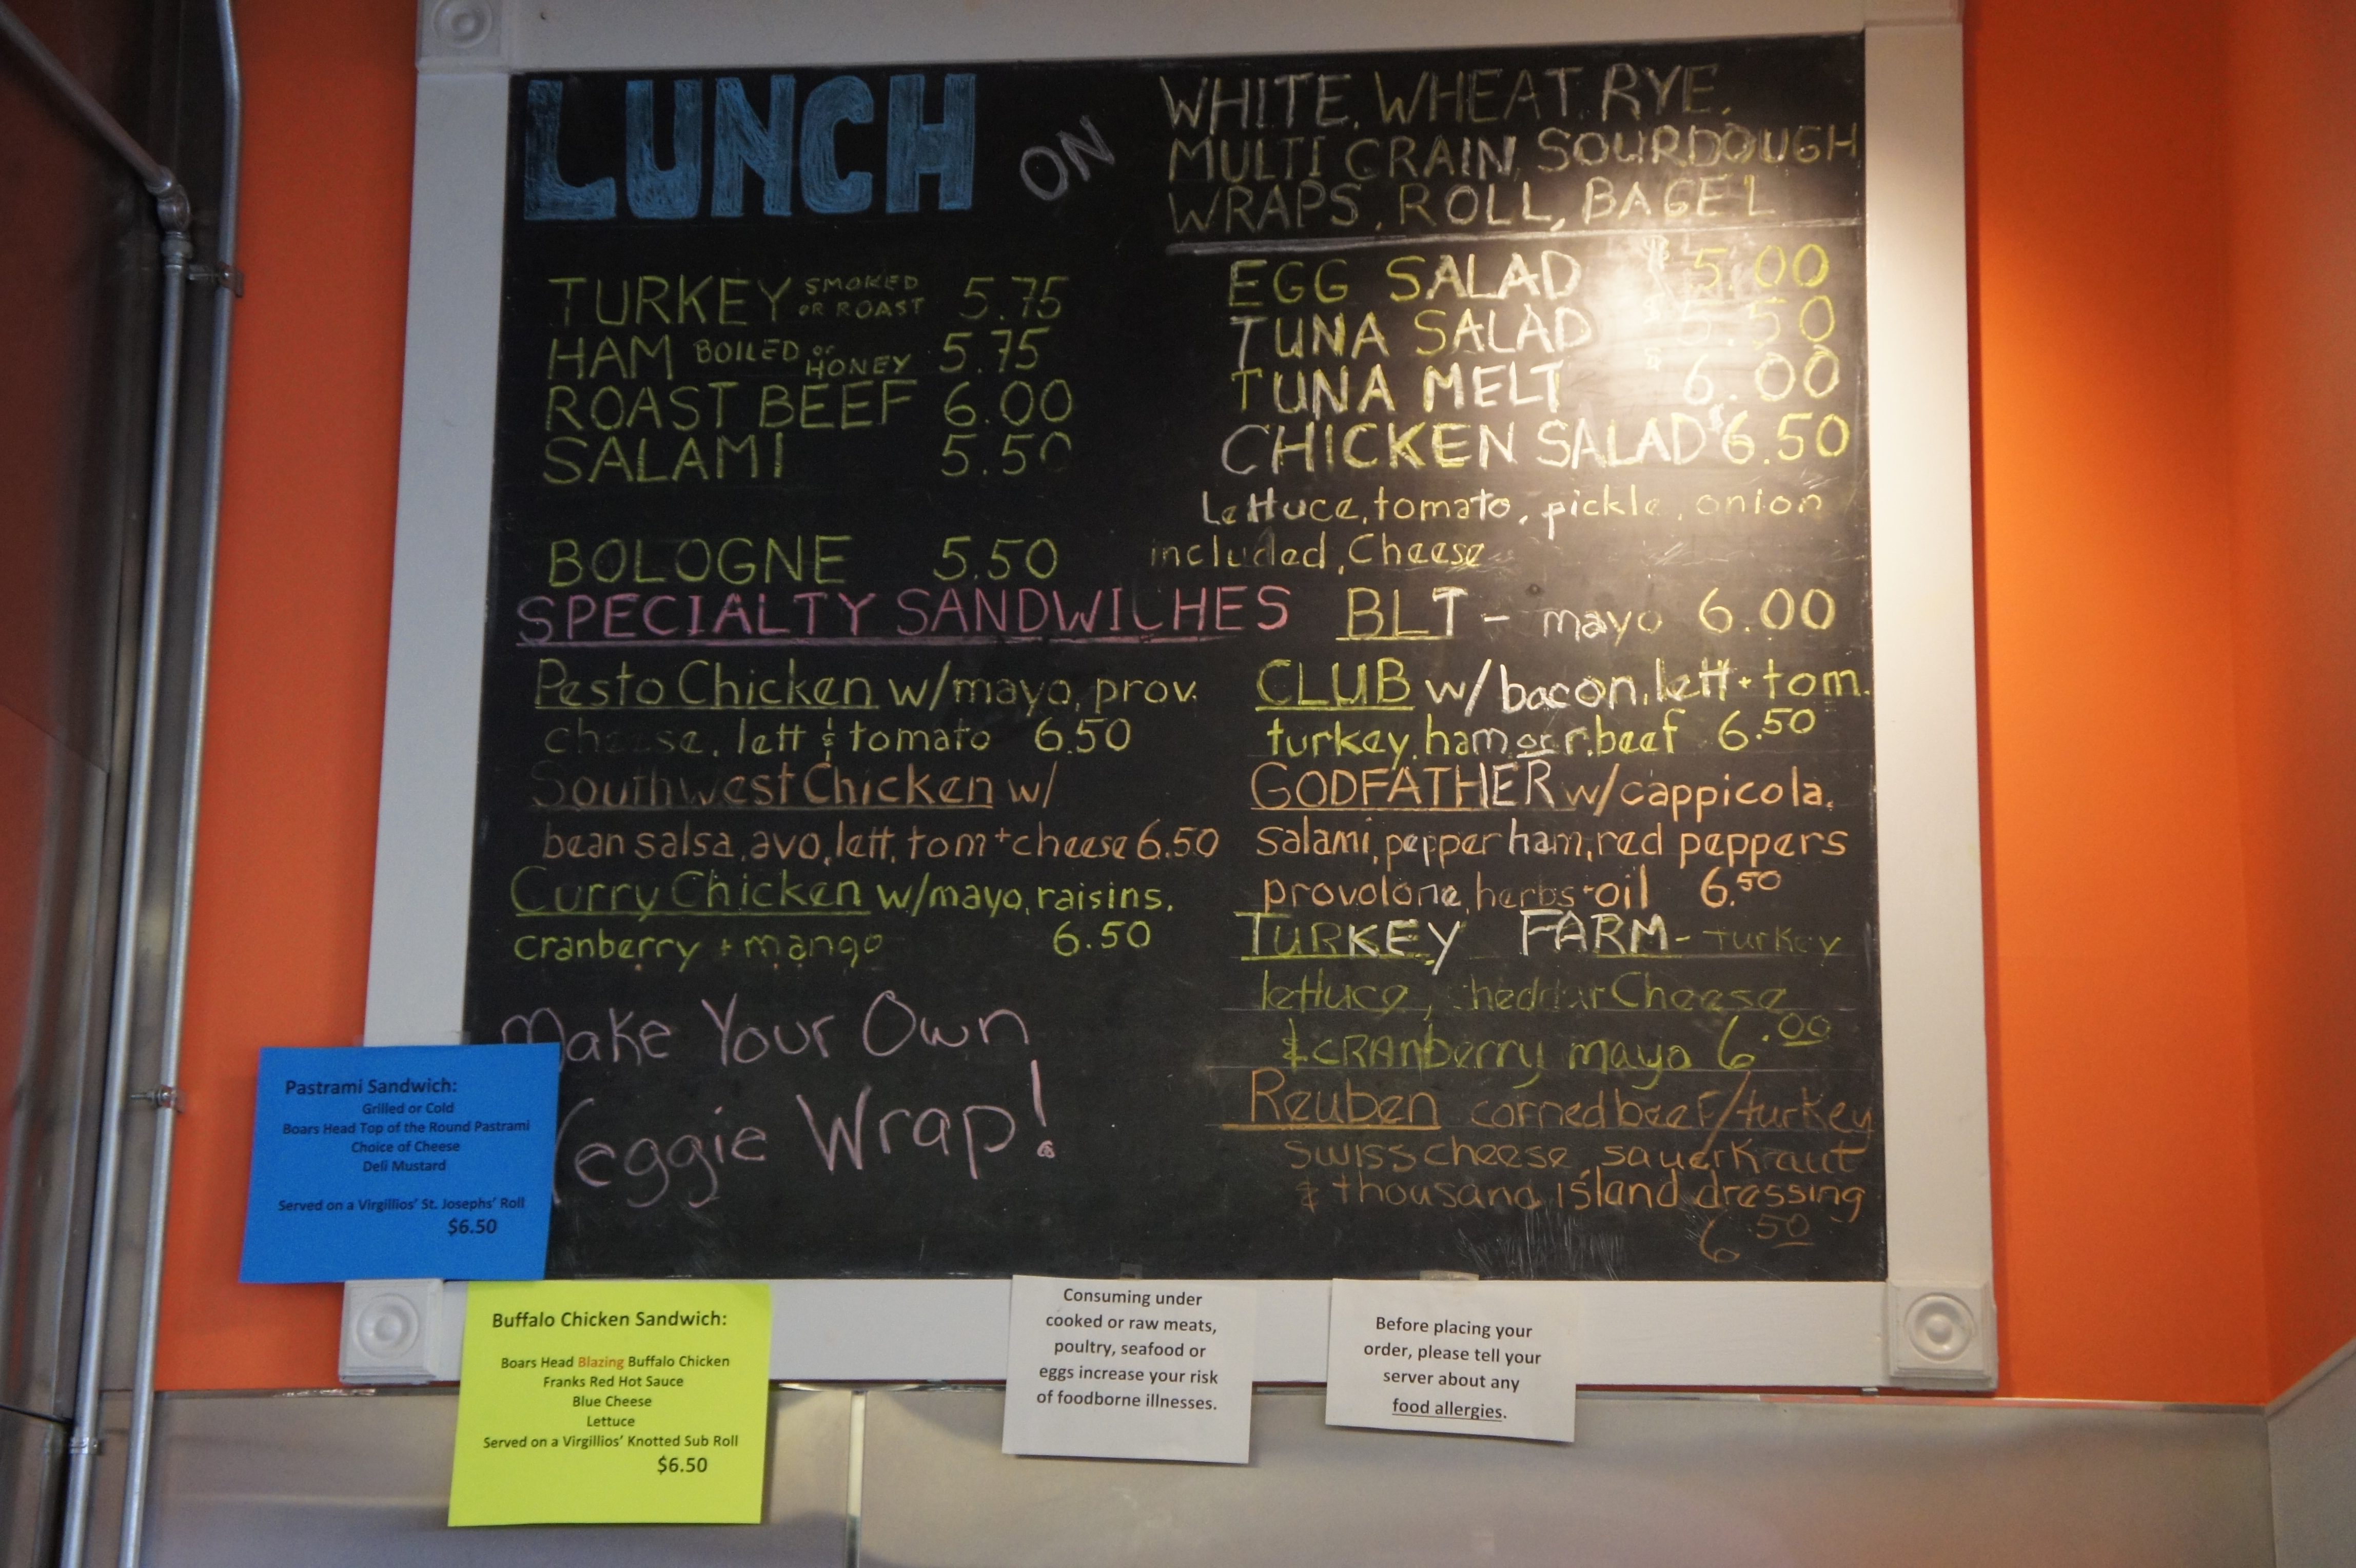 LUNCH ON
WHITE, WHEAT, RYE,
MULTI GRAIN, SOURDOUGH
WRAPS, ROLL, BAGEL
TURKEY SMOKED OR ROAST 5.75
HAM BOILED or HONEY 5.75
ROAST BEEF 6.00
SALAMI 5.50
BOLOGNE 5.50
EGG SALAD $5.00
TUNA SALAD $5.50
TUNA MELT $6.00
CHICKEN SALAD $6.50
Lettuce, tomato, pickle, onion
included, Cheese
SPECIALTY SANDWICHES
Pesto Chicken w/mayo, prov.
cheese, lett & tomato 6.50
Southwest Chicken w/
bean salsa, avo, lett, tom + cheese 6.50
Curry Chicken w/mayo, raisins,
cranberry + mango 6.50
Make Your Own
Veggie Wrap!
BLT - mayo 6.00
CLUB w/bacon, lett + tom.
turkey, ham or r. beef 6.50
GODFATHER w/cappicola,
salami, pepper ham, red peppers
provolone, herbs + oil 6.50
TURKEY FARM - turkey
lettuce, cheddar Cheese
& CRANberry mayo 6.00
Reuben corned beef/turkey
swiss cheese, sauerkraut
& thousand island dressing
6.50
Pastrami Sandwich:
Grilled or Cold
Boars Head Top of the Round Pastrami
Choice of Cheese
Deli Mustard
Served on a Virgillios' St. Josephs' Roll
$6.50
Buffalo Chicken Sandwich:
Boars Head Blazing Buffalo Chicken
Franks Red Hot Sauce
Blue Cheese
Lettuce
Served on a Virgillios' Knotted Sub Roll
$6.50
Consuming under
cooked or raw meats,
poultry, seafood or
eggs increase your risk
of foodborne illnesses.
Before placing your
order, please tell your
server about any
food allergies.